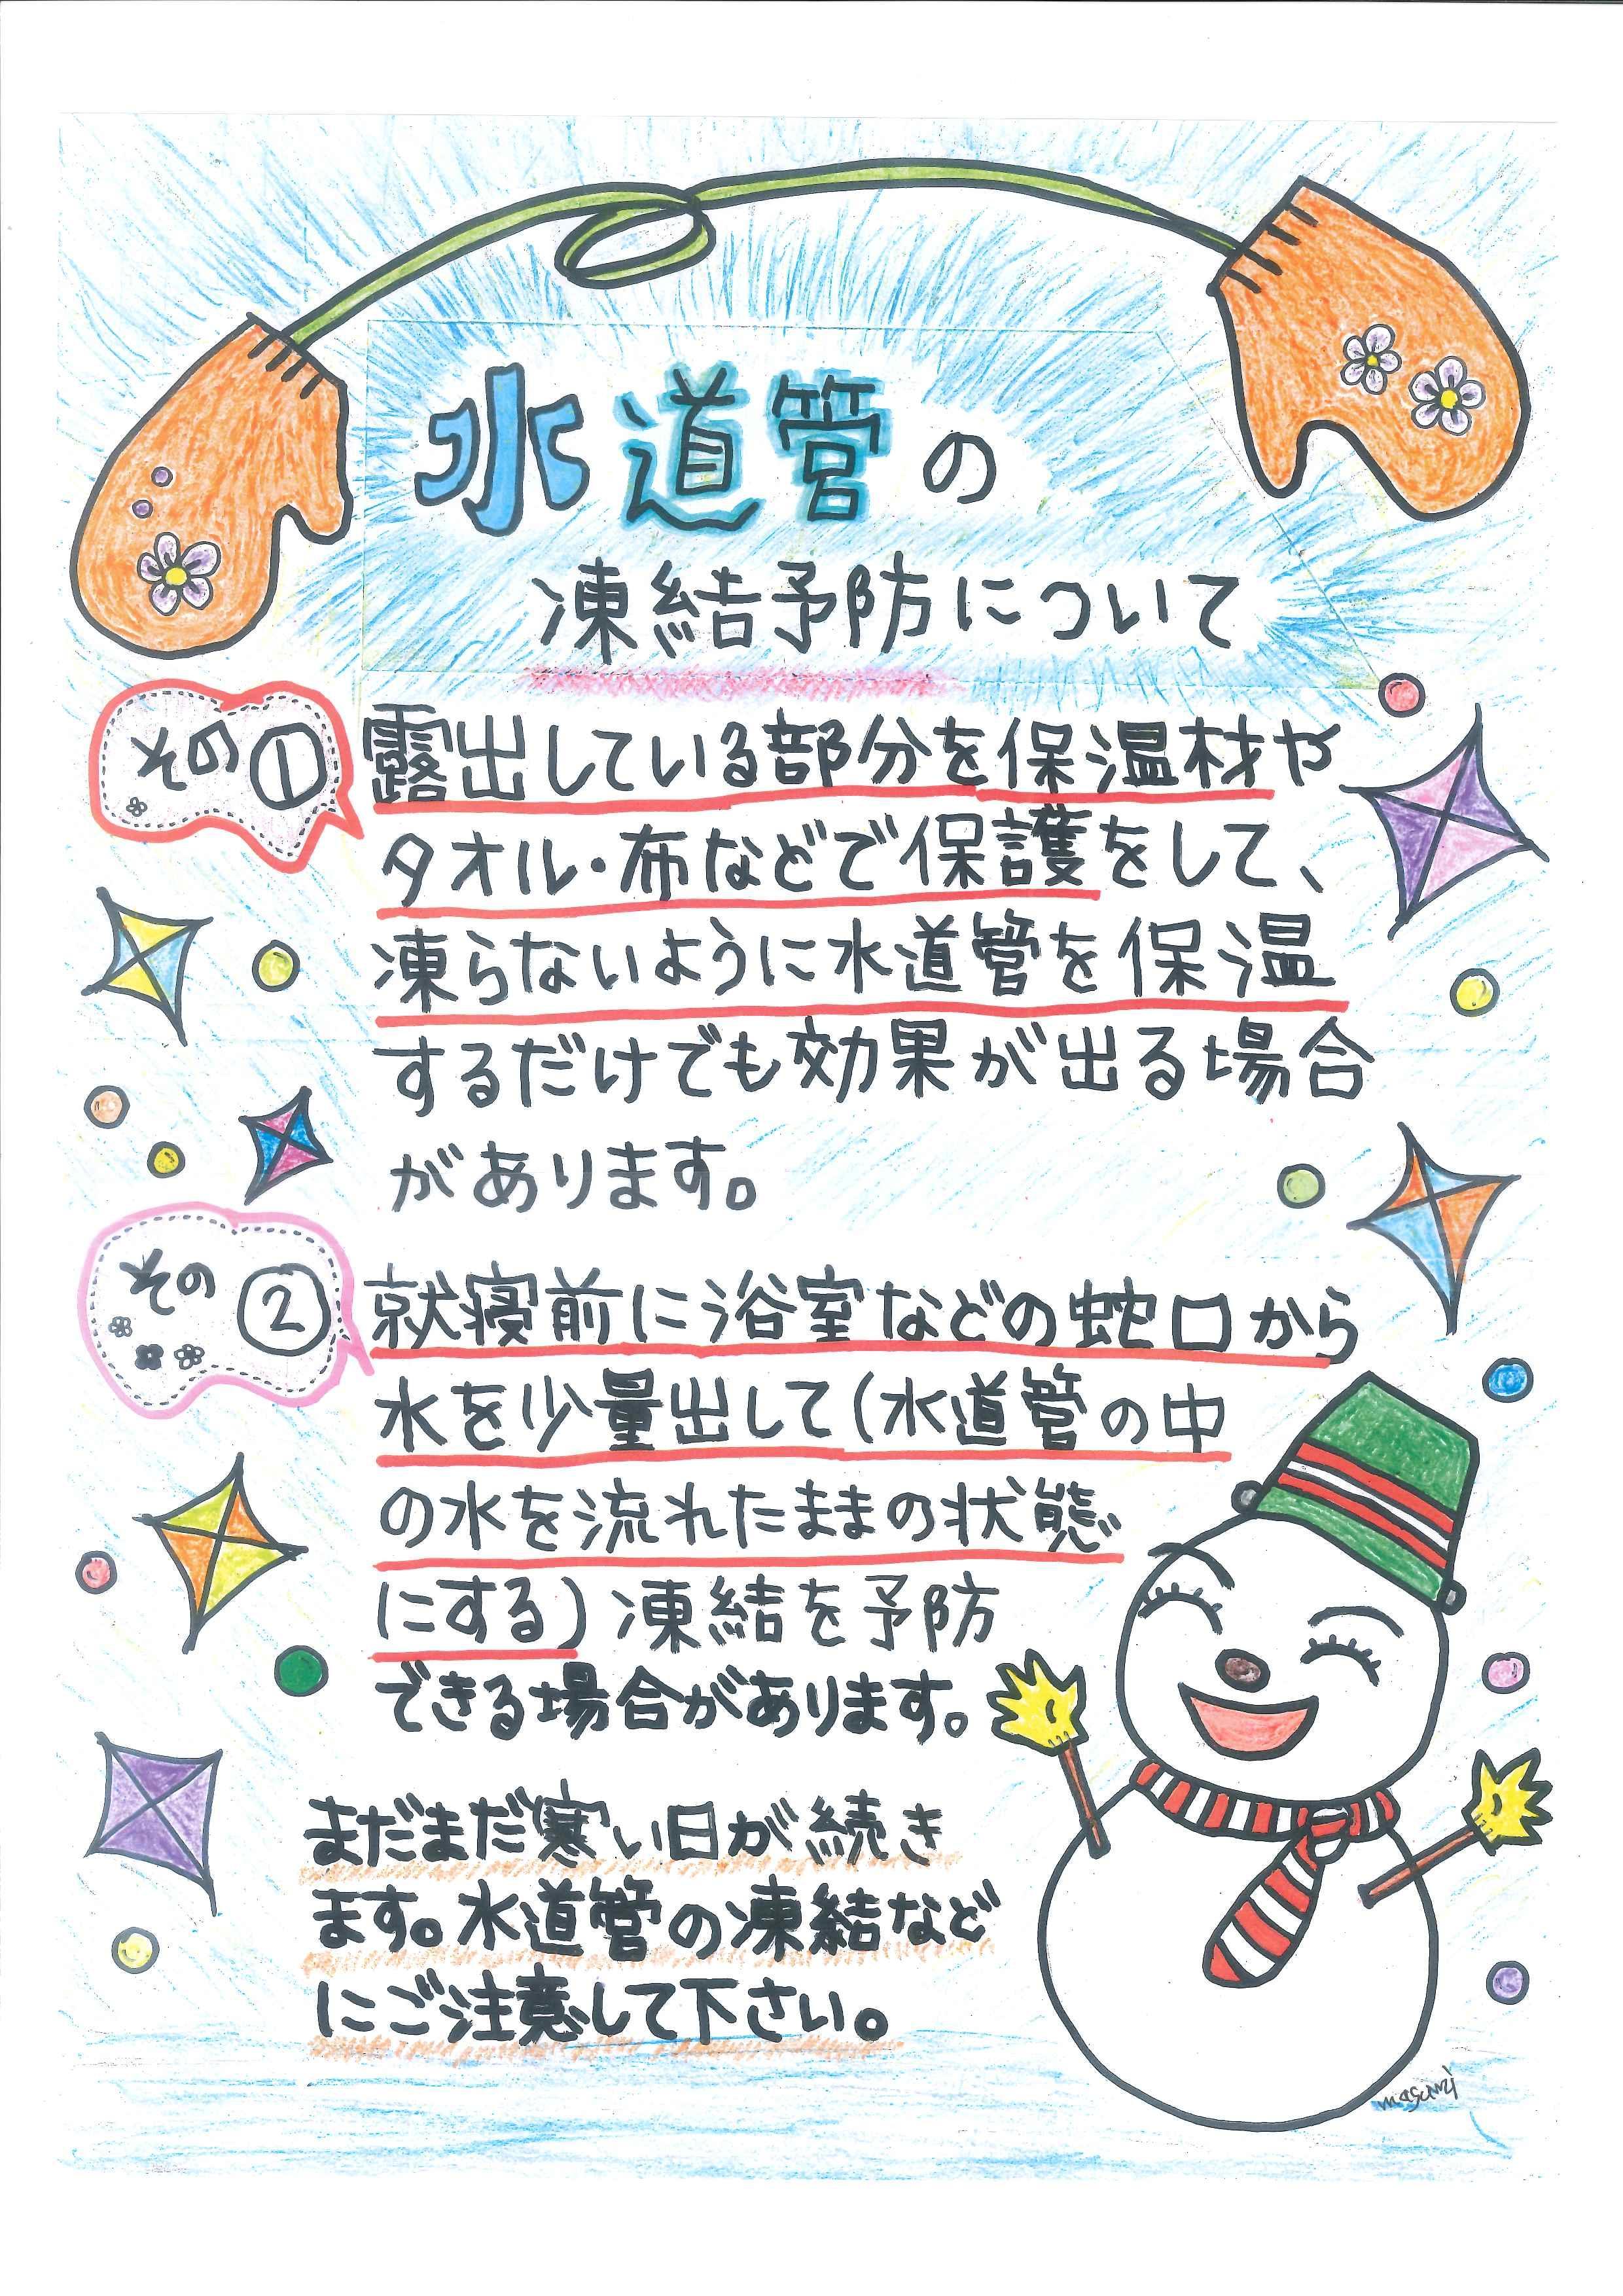 水道管の
凍結予防について
その①
露出している部分を保温材や
タオル・布などで保護をして、
凍らないように水道管を保温
するだけでも効果が出る場合
があります。
その②
就寝前に浴室などの蛇口から
水を少量出して(水道管の中
の水を流れたままの状態
にする)凍結を予防
できる場合があります。
まだまだ寒い日が続き
ます。水道管の凍結など
にご注意して下さい。
masami